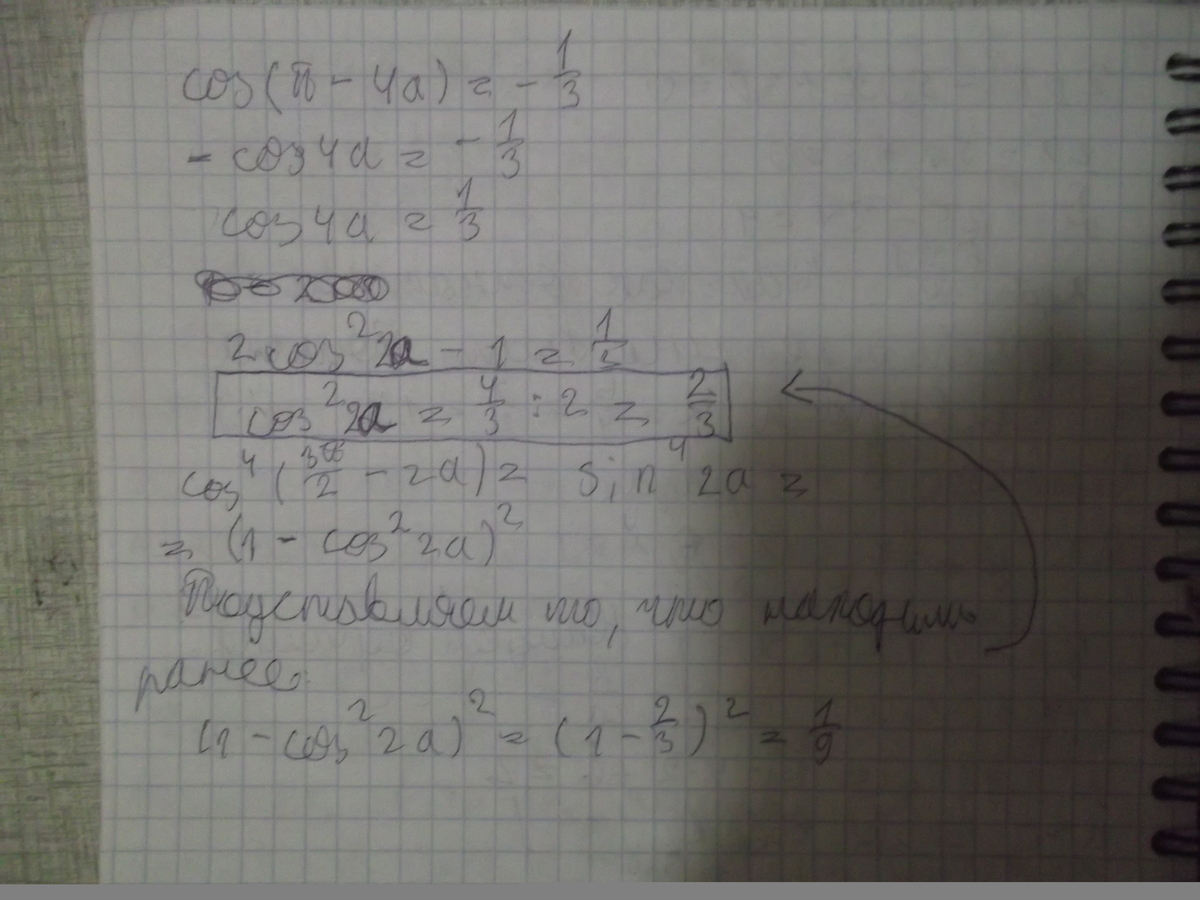 cos(π - 4a) = - 1/3
- cos4a = - 1/3
cos4a = 1/3
2cos²2a - 1 = 1/3
cos²2a = 4/3 : 2 = 2/3
cos⁴(3π/2 - 2a) = sin⁴2a =
= (1 - cos²2a)²
Подставляем то, что находим
ранее.
(1 - cos²2a)² = (1 - 2/3)² = 1/9